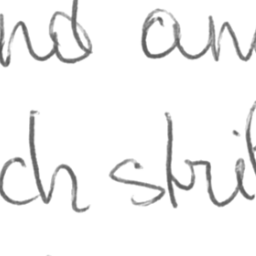 nd an
ch stri